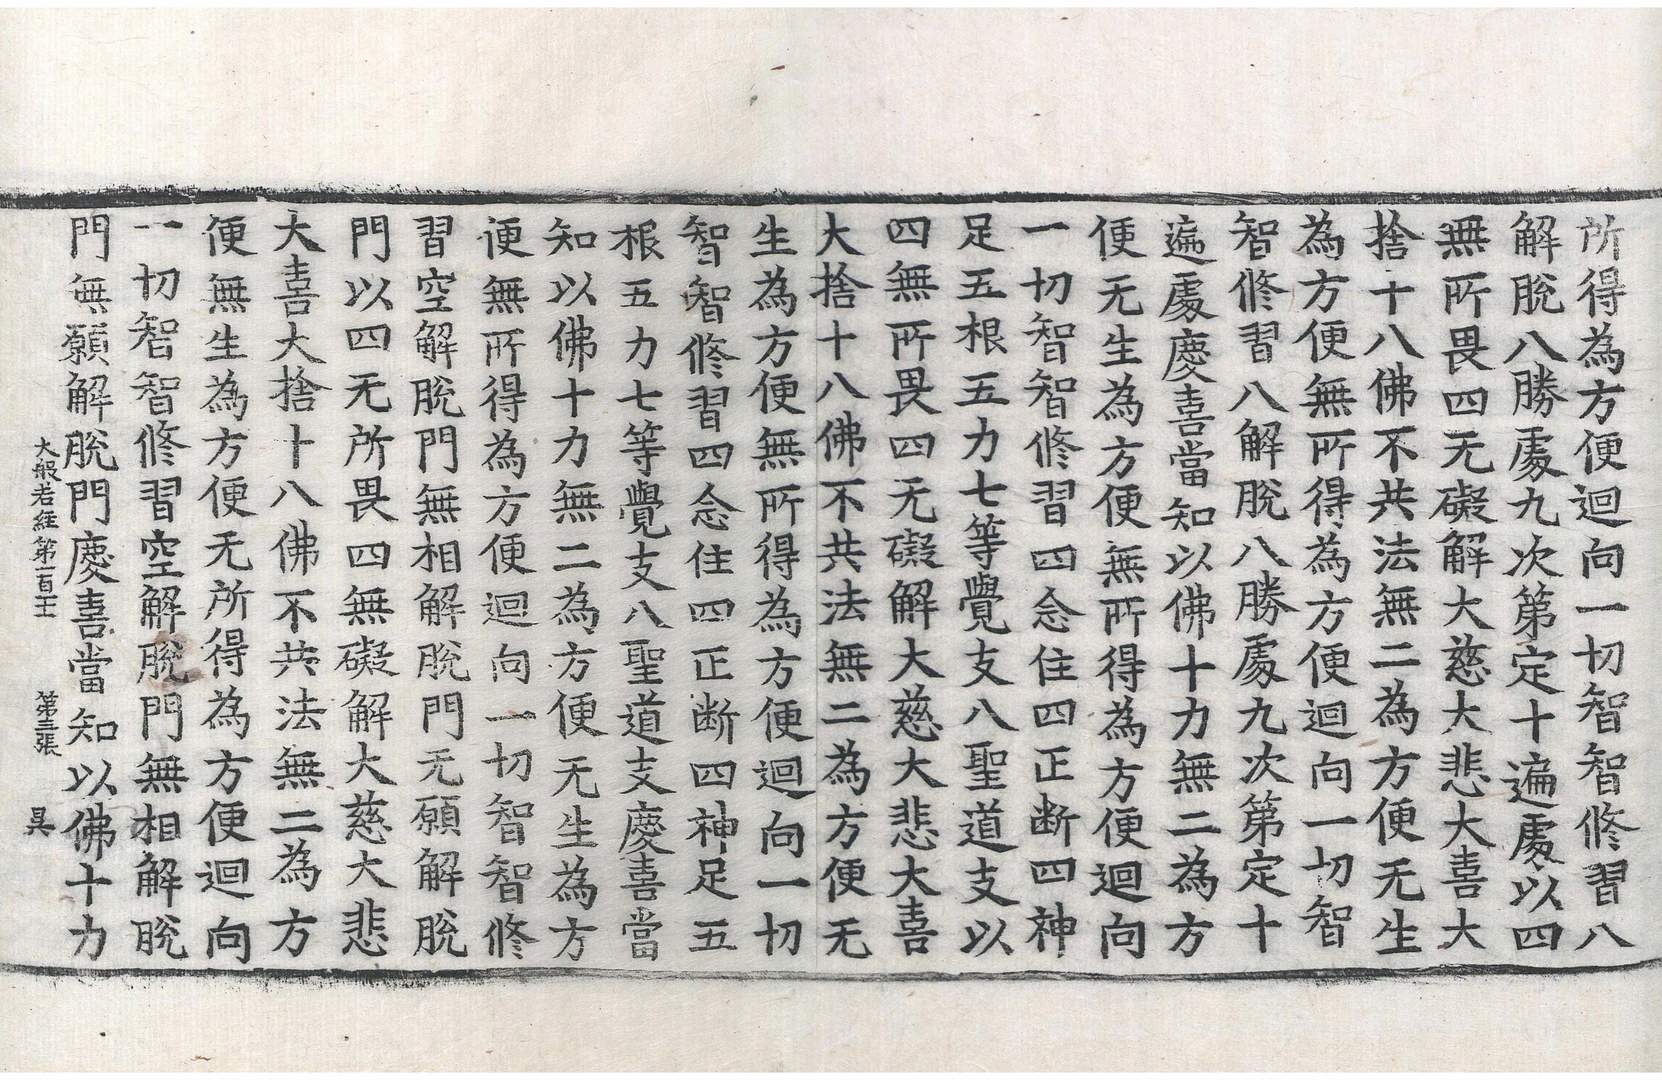 所得為方便迴向一切智智修習八
解脫八勝處九次第定十遍處以四
無所畏四无礙解大慈大悲大喜大
捨十八佛不共法無二為方便无生
為方便無所得為方便迴向一切智
智修習八解脫八勝處九次第定十
遍處慶喜當知以佛十力無二為方
便无生為方便無所得為方便迴向
一切智智修習四念住四正断四神
足五根五力七等覺支八聖道支以
四無所畏四无礙解大慈大悲大喜
大捨十八佛不共法無二為方便无
生為方便無所得為方便迴向一切
智智修習四念住四正断四神足五
根五力七等覺支八聖道支慶喜當
知以佛十力無二為方便无生為方
便無所得為方便迴向一切智智修
習空解脫門無相解脫門无願解脫
門以四无所畏四無礙解大慈大悲
大喜大捨十八佛不共法無二為方
便無生為方便无所得為方便迴向
一切智智修習空解脫門無相解脫
門無願解脫門慶喜當知以佛十力
大般若経第一百 第 張 昃